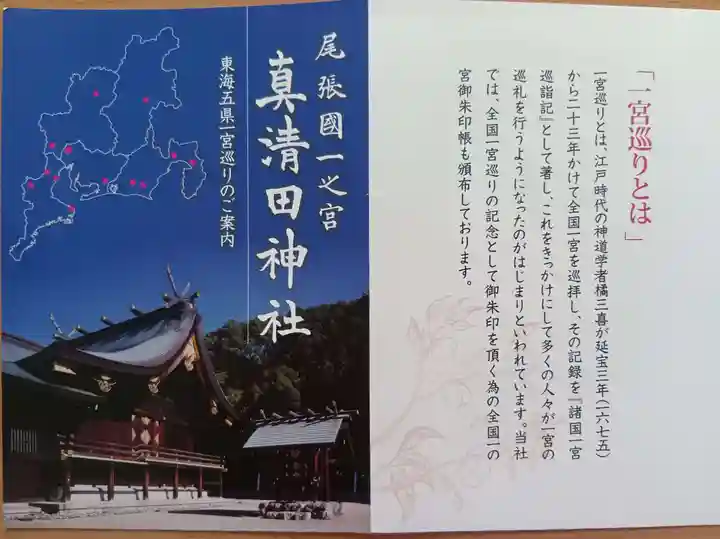 「一宮巡りとは」
一宮巡りとは、江戸時代の神道学者橘三喜が延宝三年(一六七五)
から二十三年かけて全国一宮を巡拝し、その記録を『諸国一宮
巡詣記』として著し、これをきっかけにして多くの人々が一宮の
巡礼を行うようになったのがはじまりといわれています。当社
では、全国一宮巡りの記念として御朱印を頂く為の全国一の
宮御朱印帳も頒布しております。
尾張國一之宮
真清田神社
東海五県一宮巡りのご案内